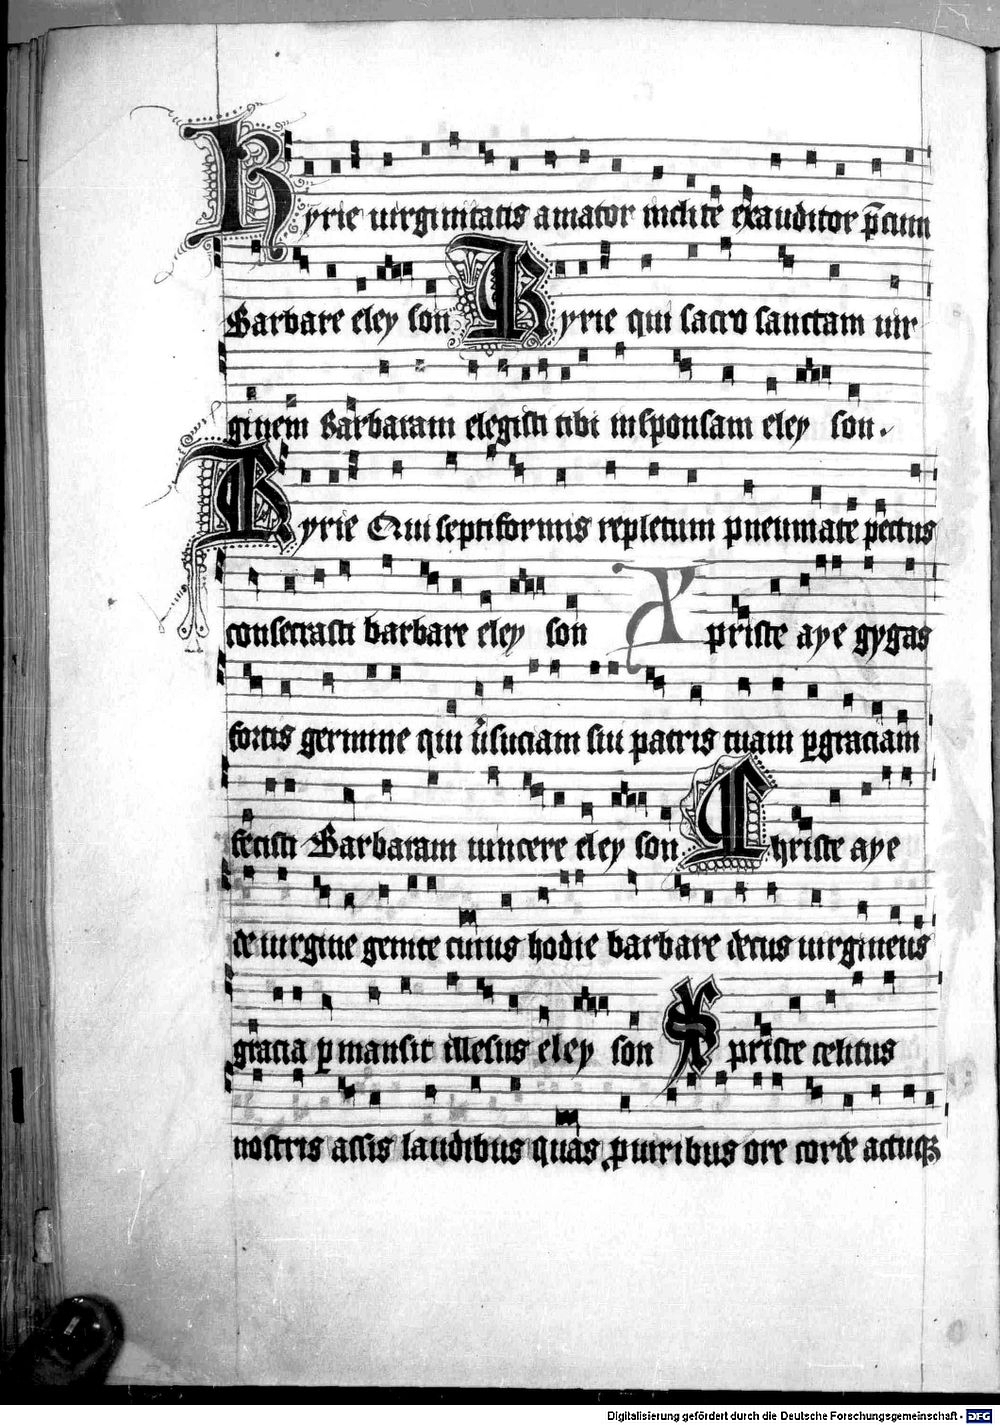 Kyrie uirginitatis amator inclite exauditor p̄cum
Barbare eley son Kyrie qui sacro sanctam uir
ginem Barbaram elegisti tibi in sponsam eley son.
Kyrie Qui septiformis repletum pneumate pectus
consecrasti barbare eley son Xpriste aye gygas
fortis germine qui u̓suciam siu patris tuam ꝑgraciam
fecisti Barbaram uincere eley son Christe aye
de uirgine genite cuius hodie barbare decus uirgineus
gracia ꝑmansit illesus eley son Xpriste celitus
nostris assis laudibus quas ꝓmiribus ore corde actuqꝫ
Digitalisierung gefördert durch die Deutsche Forschungsgemeinschaft - DFG